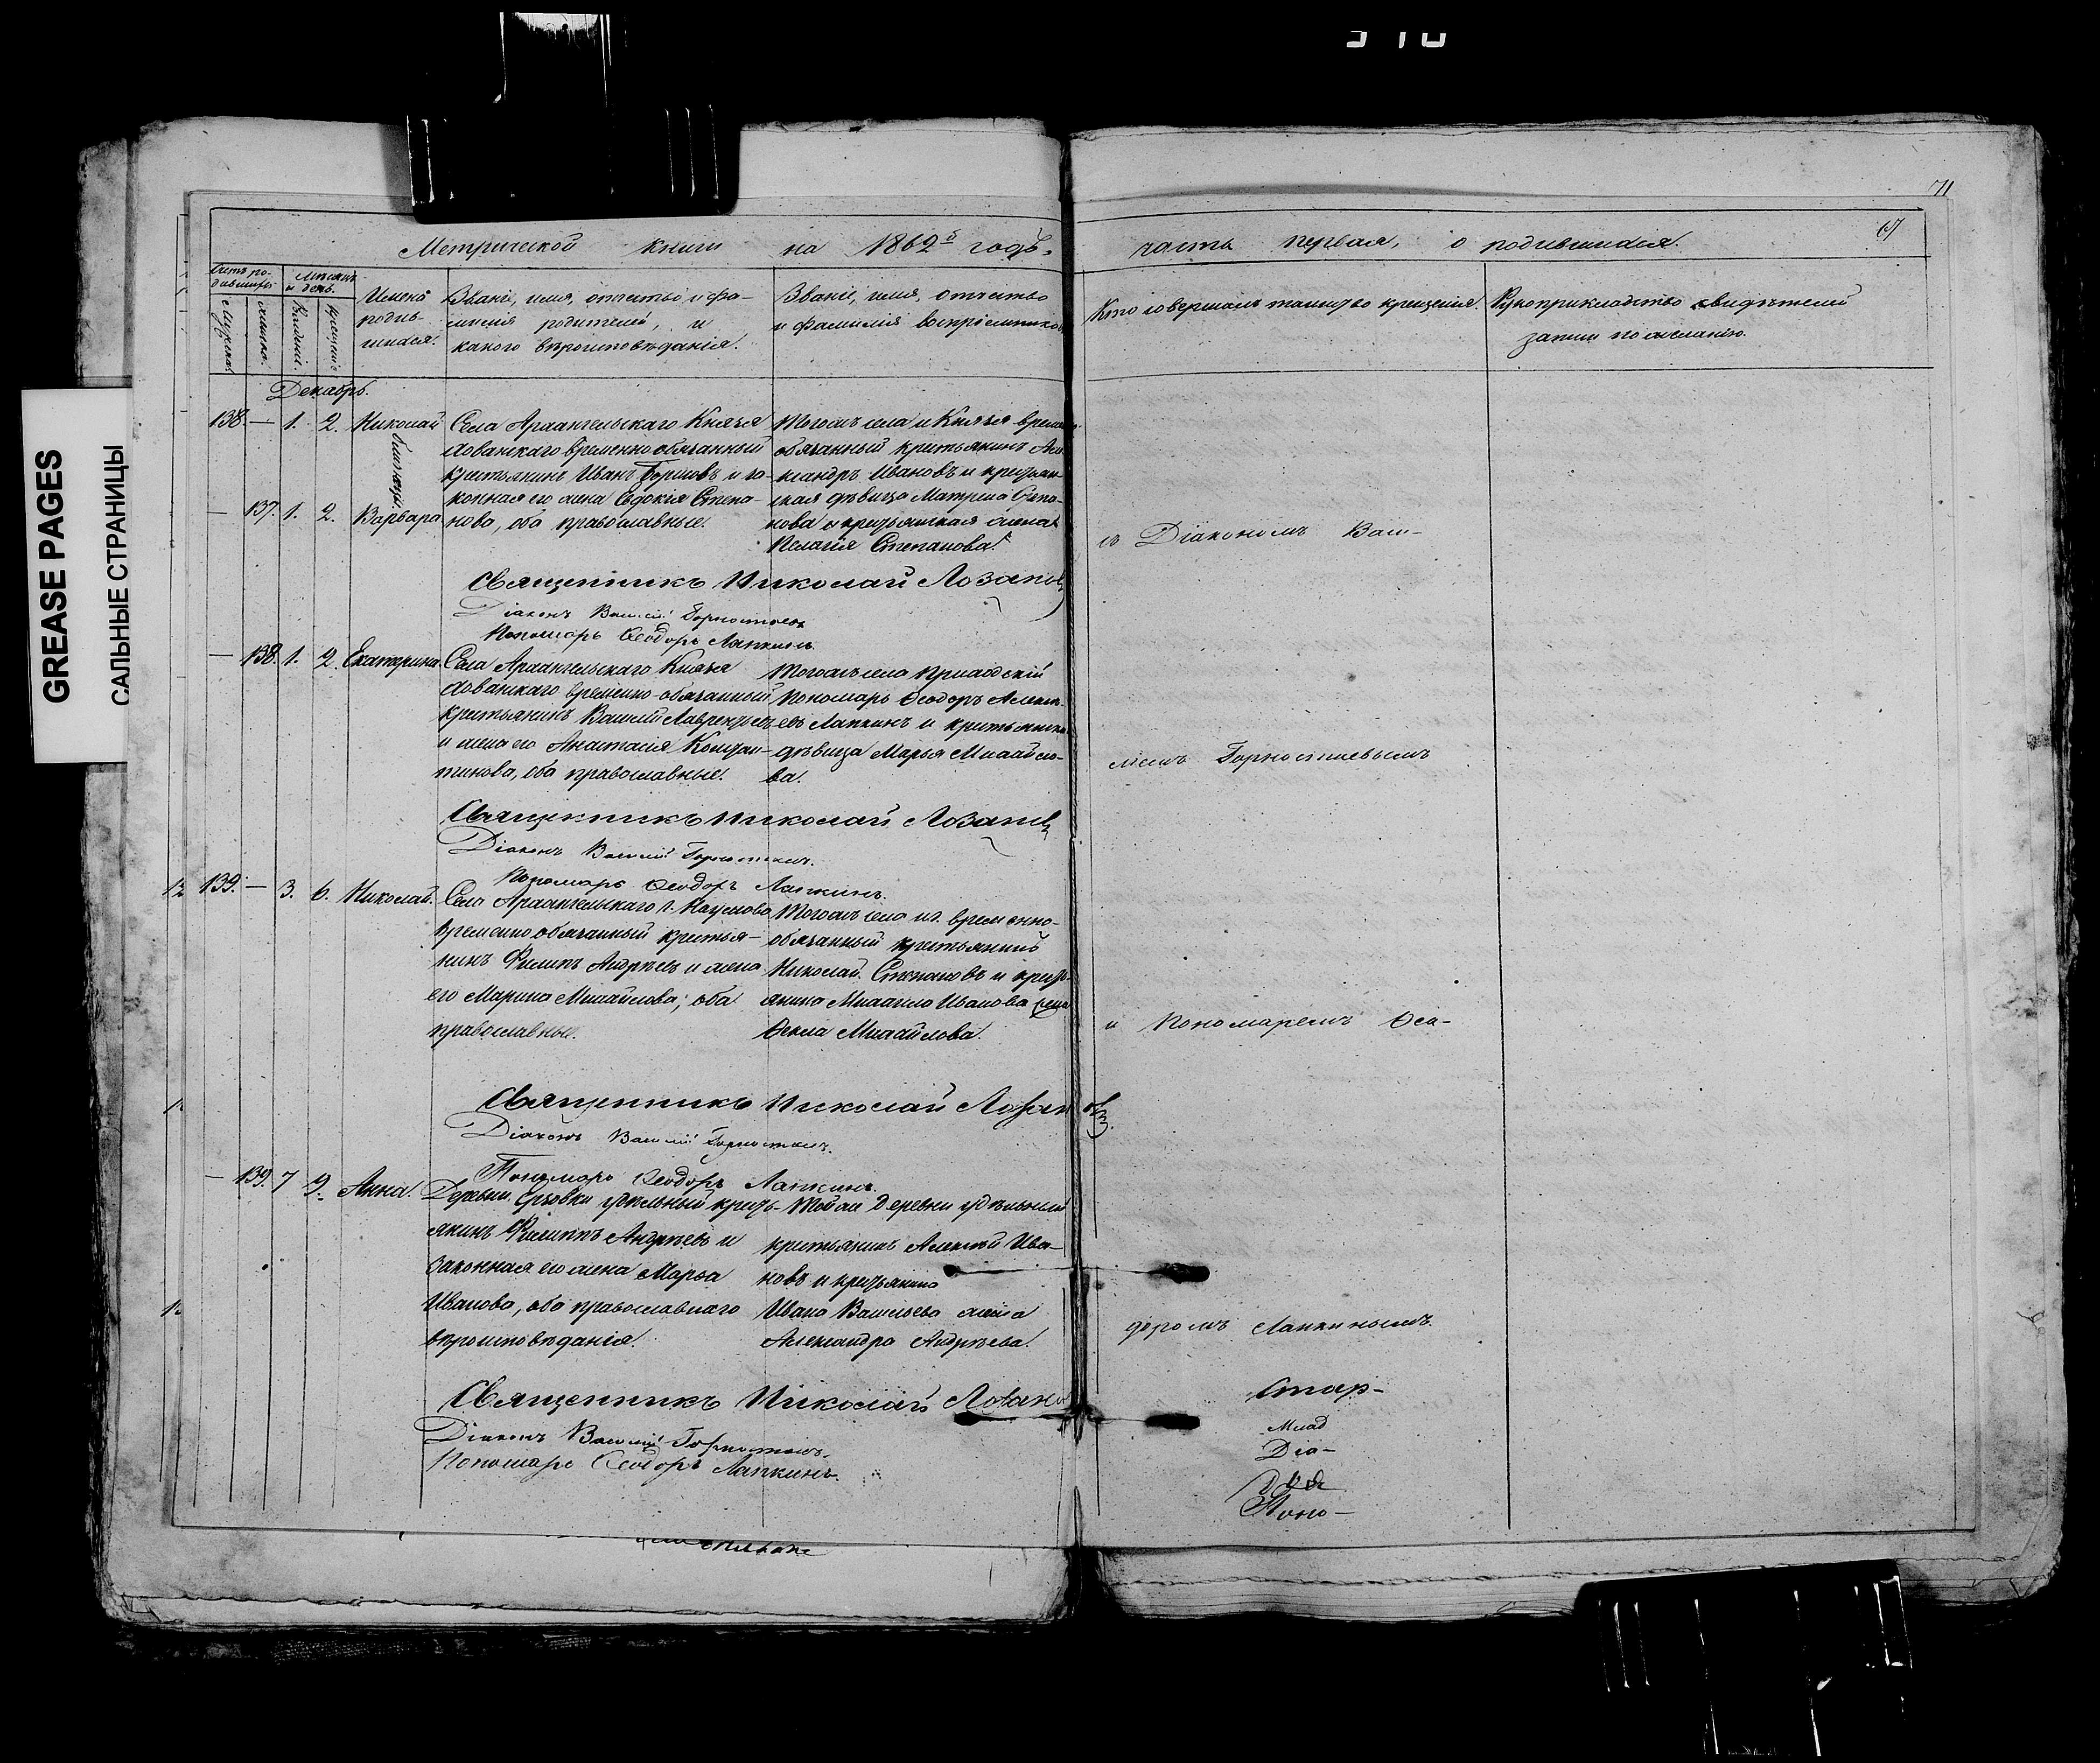 GREASE PAGES
САЛЬНЫЕ СТРАНИЦЫ
71
Метрической книги на 1862й годъ,
часть первая, о родившихся.
Счетъ ро-
дившихся
Мѣсяцъ
и день.
Мужеска
женска.
Рожденія.
крещенія
Имена
родив-
шихся.
Званіе, имя, отчество и фа-
милія родителей, и
какого вѣроисповѣданія.
Званіе, имя, отчество
и фамилія воспріемниковъ
Кто совершалъ таинство крещенія.
Рукоприкладство свидѣтелей
записи по желанію.
Декабрь.
138. — 1. 2. Николай
близнецы
— 137. 1. 2. Варвара
Села Архангельскаго Князя
Хованскаго временно обязанный
крестьянинъ Иванъ и за-
конная его жена Евдокія Степа-
нова, оба православные.
Тогожъ села и Князя времен
обязанный крестьянинъ Але
ксандръ Ивановъ и крестьян-
ская дѣвица Матрена Степа-
нова и крестьянская жена
Пелагія Степанова.
Священникъ Николай Лозановъ
Діаконъ Василій Горностаевъ
Пономарь Ѳеодоръ Лапкинъ.
— 138. 1. 2. Екатерина.
Села Архангельскаго Князя
Хованскаго временно-обязанный
крестьянинъ Василій Лаврентьевъ
и жена его Анастасія Констан-
тинова, оба православные.
Тогожъ села Приходскій
Пономарь Ѳеодоръ Алексѣ-
евъ Лапкинъ и крестьянска
дѣвица Марья Михайло-
ва.
Священникъ Николай Лозановъ
Діаконъ Василій Горностаевъ.
Пономарь Ѳеодоръ Лапкинъ.
139. — 3. 6. Николай.
Села Архангельскаго г.
временно обязанный крестья-
нинъ Филипъ Андрѣевъ и жена
его Марина Михайлова, оба
православные.
Тогожъ села и г. временно-
обязанный крестьянинъ
Николай Степановъ и кресть-
янина Михаила Иванова жена
Ѳекла Михайлова.
Священникъ Николай Лозановъ
Діаконъ Василій Горностаевъ.
Пономарь Ѳеодоръ Лапкинъ.
— 139. 7 9. Анна.
Деревни удѣльный кресть-
янинъ Филиппъ Андрѣевъ и
законная его жена Марѳа
Иванова, оба православнаго
вѣроисповѣданія.
Тойже Деревни удѣльный
крестьянинъ Алексѣй Ива-
новъ и крестьянина
Ивана Васильева жена
Александра Андрѣева.
Священникъ Николай Лозановъ
Діаконъ Василій Горностаевъ.
Пономарь Ѳеодоръ Лапкинъ.
съ Діакономъ Васи-
ліемъ Горностаевымъ
и Пономаремъ Ѳео-
доромъ Лапкинымъ.
Стар-
Млад
Діа-
Поно-